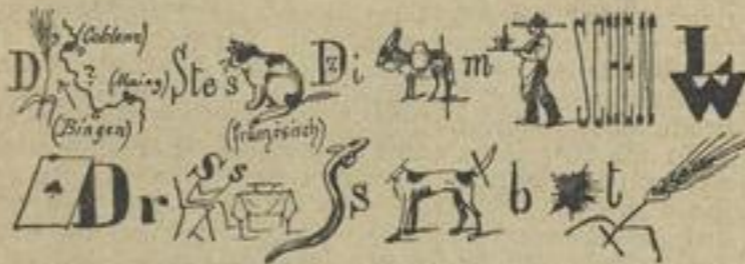 D (Coblenz) ? (Mainz) (Bingen) Ste s (französisch) Dzi m SCHEN L W
D r S s S s b t